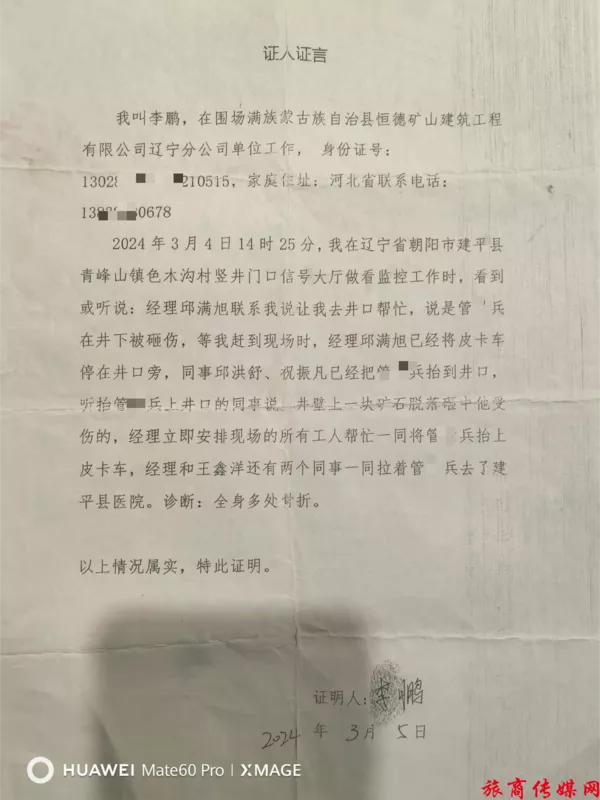 证人证言
我叫李鹏，在围场满族蒙古族自治县恒德矿山建筑工程
有限公司辽宁分公司单位工作， 身份证号：
13028 210515，家庭住址：河北省联系电话：
138 0678
2024年3月4日14时25分，我在辽宁省朝阳市建平县
青峰山镇色木沟村竖井门口信号大厅做看监控工作时，看到
或听说：经理邱满旭联系我说让我去井口帮忙，说是管 兵
在井下被砸伤，等我赶到现场时，经理邱满旭已经将皮卡车
停在井口旁，同事邱洪舒、祝振凡已经把管 兵抬到井口，
听抬管 兵上井口的同事说，井壁上一块矿石脱落砸中他受
伤的，经理立即安排现场的所有工人帮忙一同将管 兵抬上
皮卡车，经理和王鑫洋还有两个同事一同拉着管 兵去了建
平县医院。诊断：全身多处骨折。
以上情况属实，特此证明。
证明人：李鹏
2024 年 3月 5日
HUAWEI Mate60 Pro | XMAGE
旅商传媒网